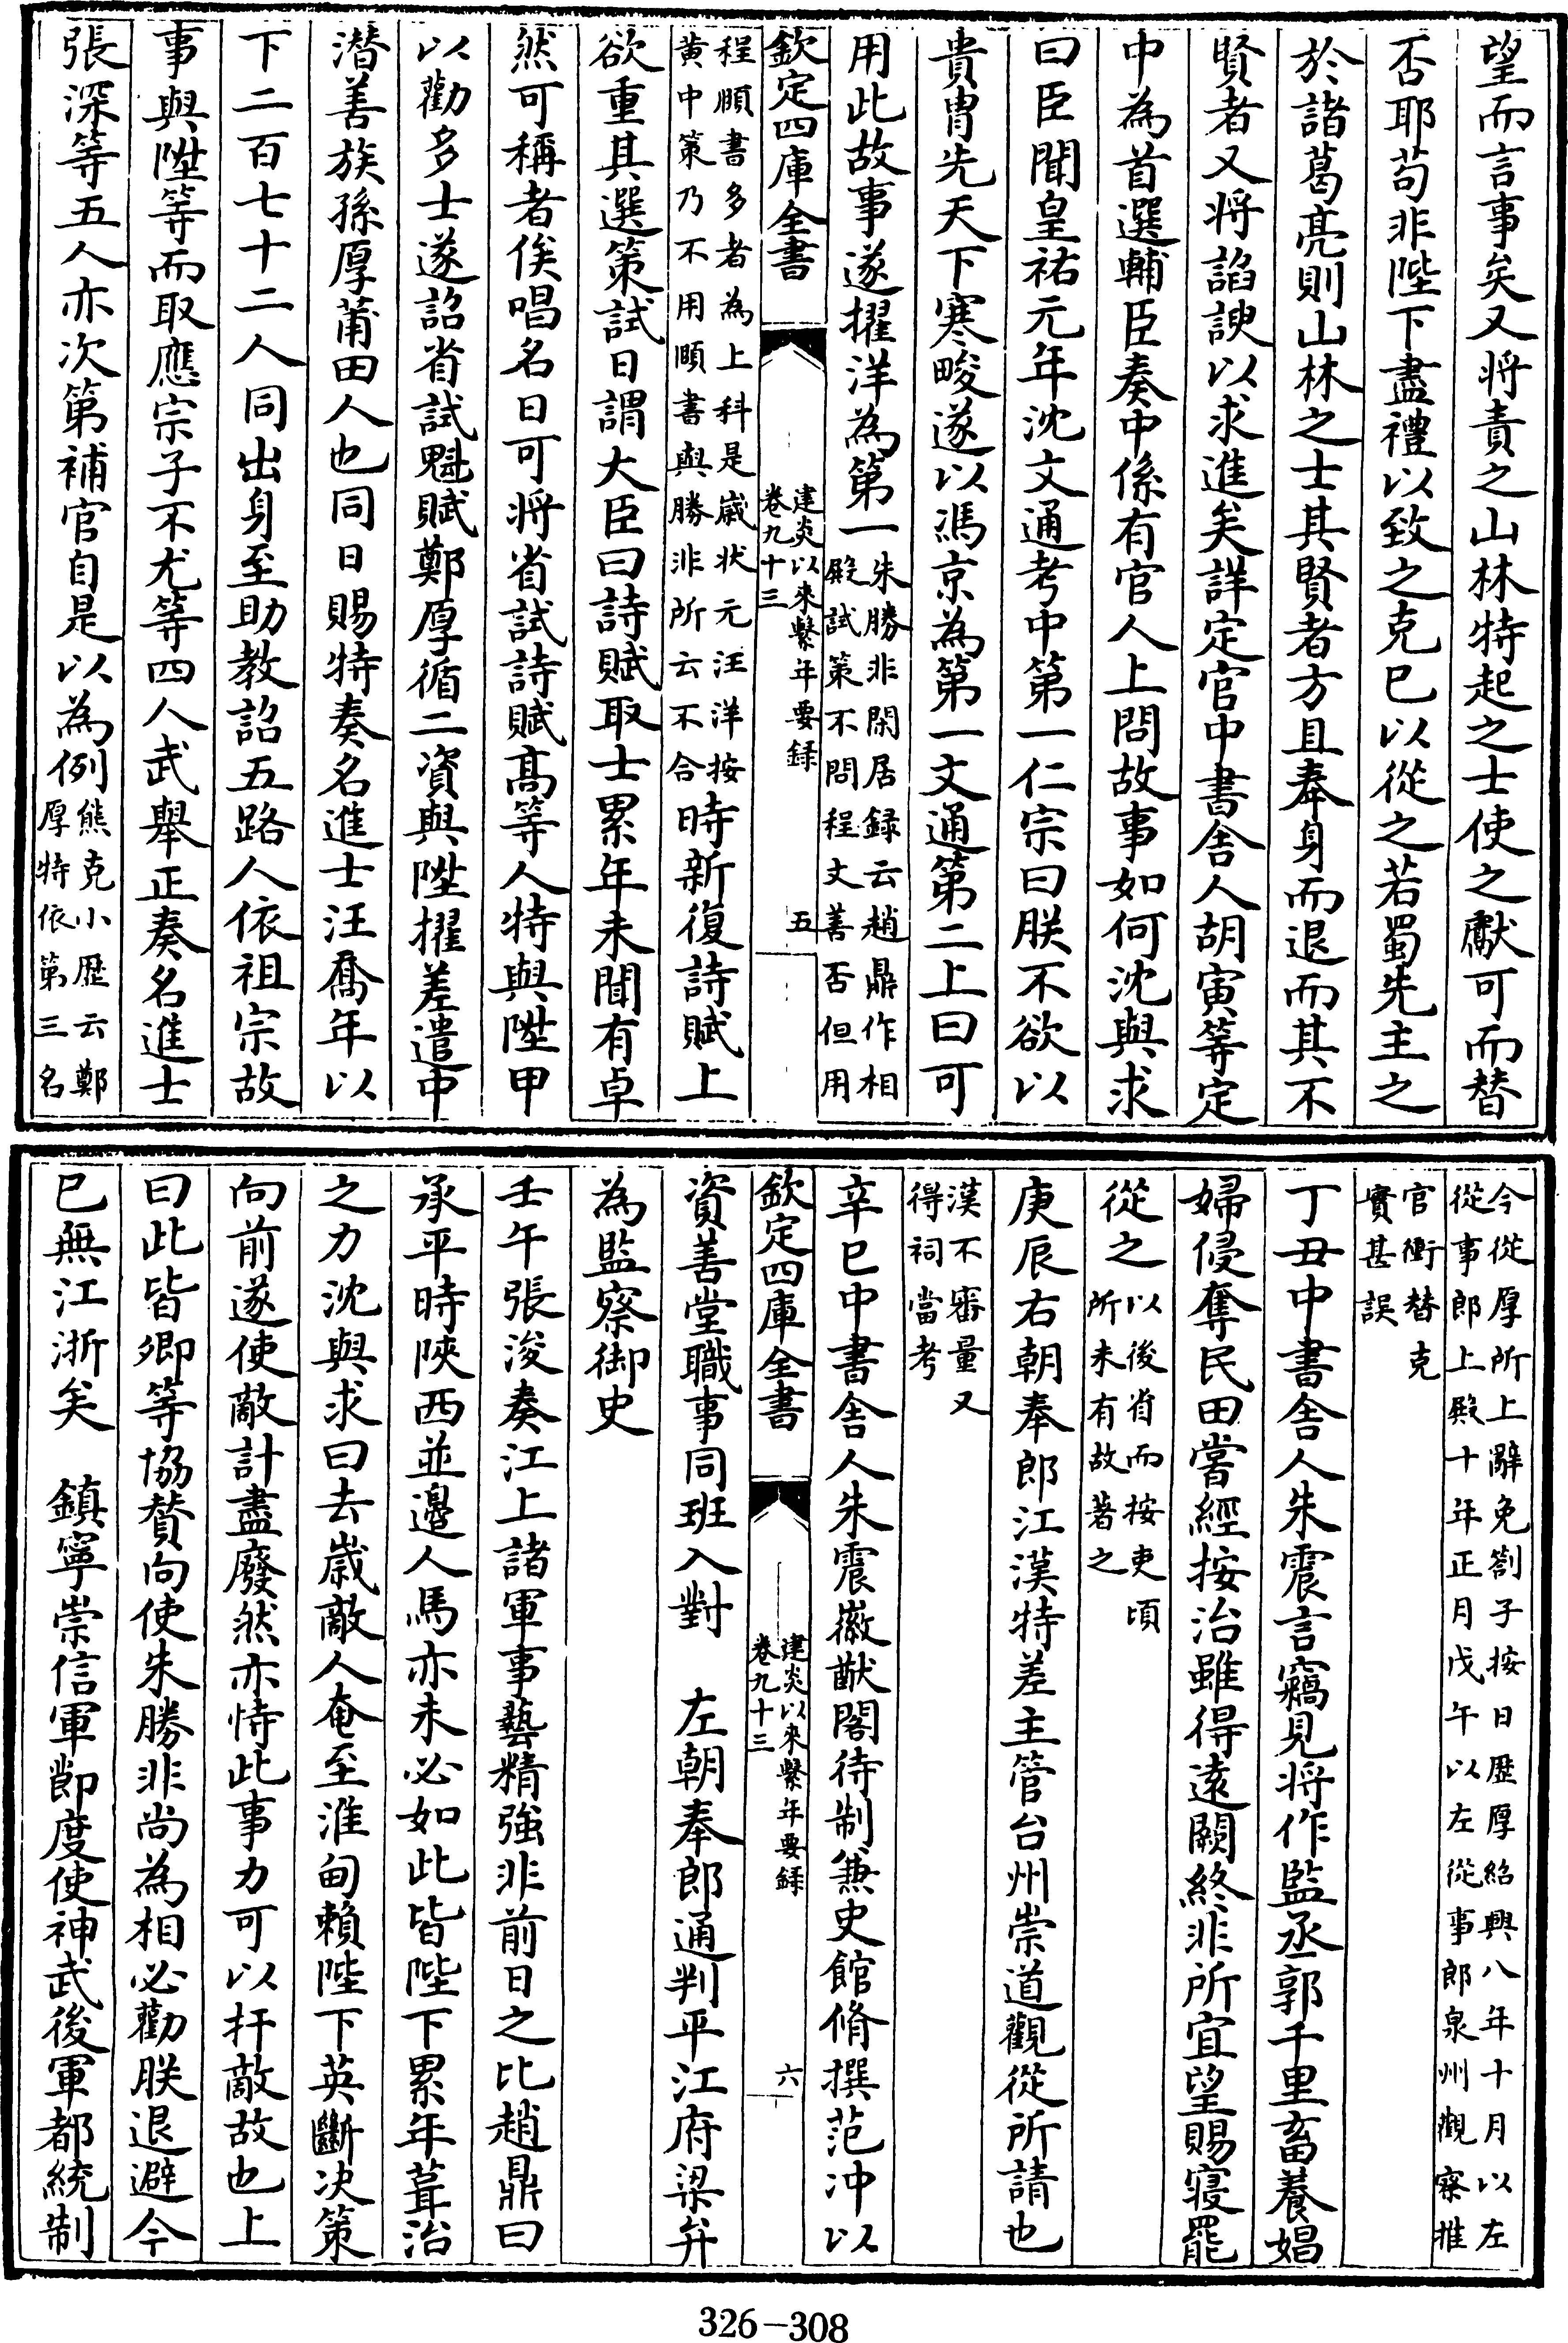 望而言事矣又将責之山林特起之士使之獻可而替
否耶苟非陛下盡禮以致之克已以從之若蜀先主之
於諸葛亮則山林之士其賢者方且奉身而退而其不
賢者又将諂諛以求進矣詳定官中書舍人胡寅等定
中為首選輔臣奏中係有官人上問故事如何沈與求
曰臣聞皇祐元年沈文通考中第一仁宗曰朕不欲以
貴胄先天下寒畯遂以馮京為第一文通第二上曰可
用此故事遂擢洋為第一朱勝非閑居録云趙鼎作相
殿試策不問程文善否但用
欽定四庫全書
建炎以來繫年要録
卷九十三
五
程頤書多者為上科是歲状元汪洋按
黄中策乃不用頤書與勝非所云不合時新復詩賦上
欲重其選策試日謂大臣曰詩賦取士累年未聞有卓
然可稱者俟唱名日可将省試詩賦髙等人特與陞甲
以勸多士遂詔省試魁賦鄭厚循二資與陞擢差遣中
潜善族孫厚莆田人也同日賜特奏名進士汪喬年以
下二百七十二人同出身至助教詔五路人依祖宗故
事與陞等而取應宗子不尤等四人武舉正奏名進士
張深等五人亦次第補官自是以為例熊克小歴云鄭
厚特依第三名
今從厚所上辭免劄子按日歴厚紹興八年十月以左
從事郎上殿十年正月戊午以左從事郎泉州觀察推
官衝替克
實甚誤
丁丑中書舍人朱震言竊見将作監丞郭千里畜養娼
婦侵奪民田嘗經按治雖得逺闕終非所宜望賜寢罷
從之以後省而按吏頃
所未有故著之
庚辰右朝奉郎江漢特差主管台州崇道觀從所請也
漢不審量又
得祠當考
辛巳中書舍人朱震徽猷閣待制兼史館脩撰范冲以
欽定四庫全書
建炎以來繫年要録
卷九十三
六
資善堂職事同班入對　左朝奉郎通判平江府梁弁
為監察御史
壬午張浚奏江上諸軍事藝精強非前日之比趙鼎曰
承平時陜西並邉人馬亦未必如此皆陛下累年葺治
之力沈與求曰去歲敵人奄至淮甸賴陛下英斷决策
向前遂使敵計盡廢然亦恃此事力可以扞敵故也上
曰此皆卿等協賛向使朱勝非尚為相必勸朕退避今
已無江浙矣　鎮寧崇信軍節度使神武後軍都統制
326-308